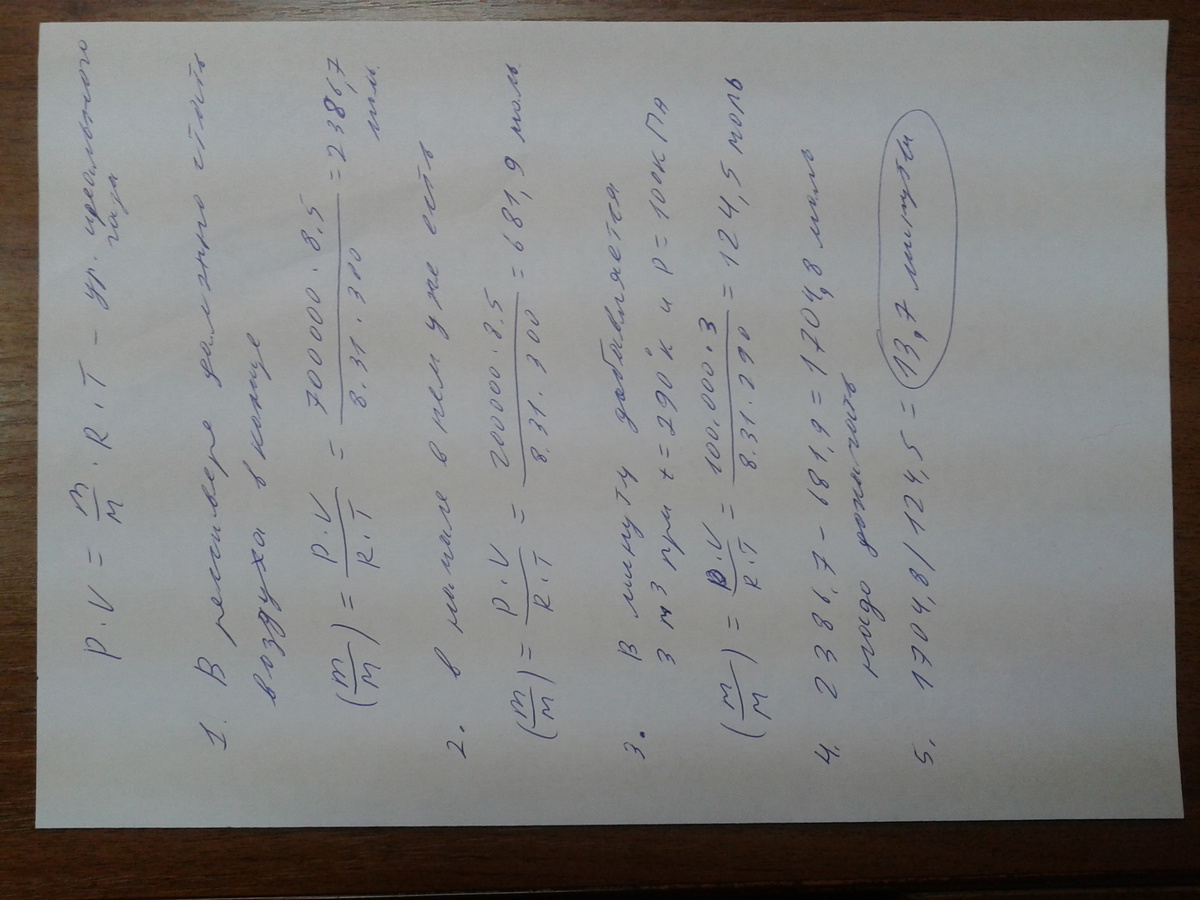 P · V = m/м · R · T – ур. идеального
газа
1. В рессивере должно стать
воздуха в конце
(m/м) = P·V/R·T = 700000 · 8,5/8.31 · 300 = 2386,7
мол.
2. в начале в нем уже есть
(m/м) = P·V/R·T = 200000 · 8.5/8.31 · 300 = 681,9 моль.
3. В минуту добавляется
3 м³ при t = 290°К и P = 100кПа
(m/м) = P·V/R·T = 100.000 · 3/8.31 · 290 = 124,5 моль
4. 2386,7 – 681,9 = 1704,8 моль
надо докачать
5. 1704,8/124,5 = 13,7 минуты